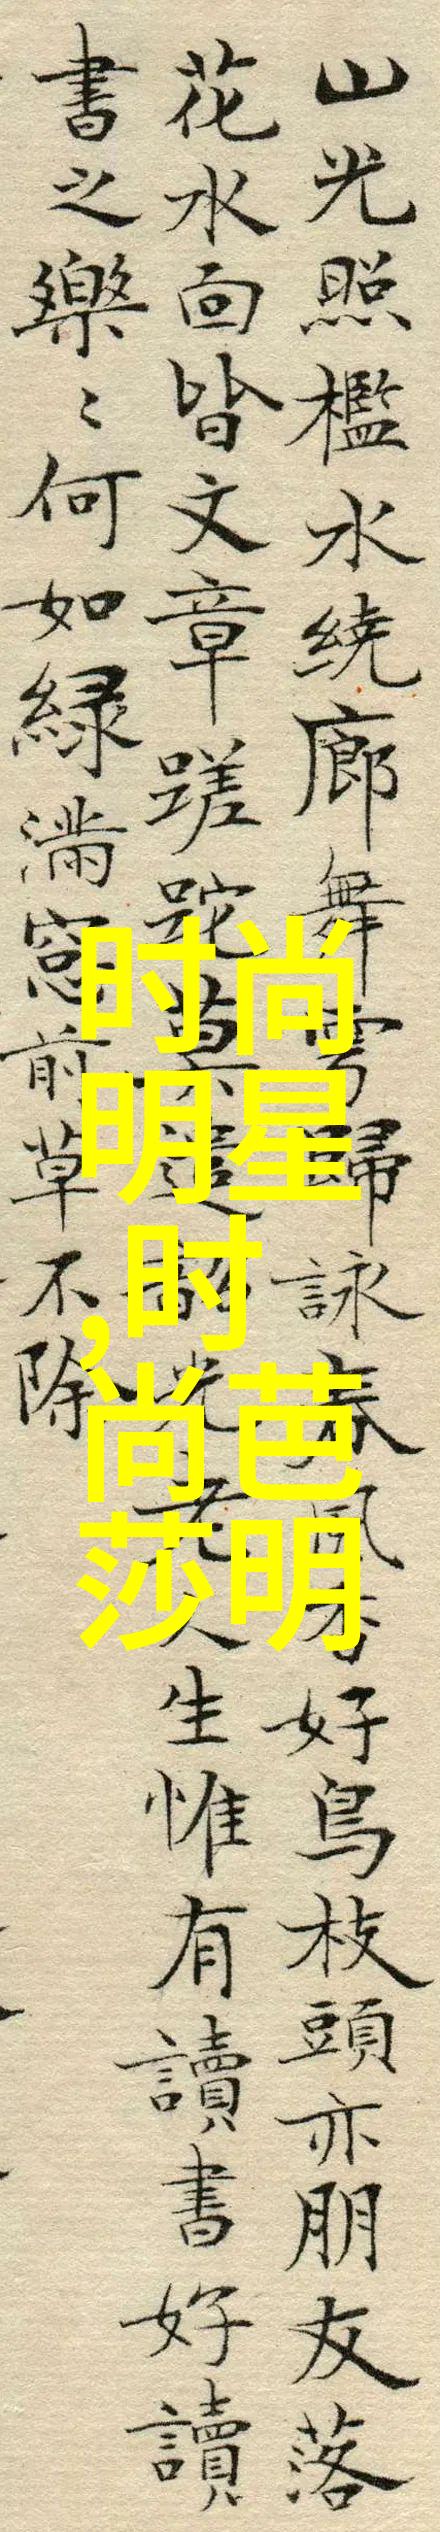 山光照檻水繞廊舞雩歸詠春風香好鳥枝頭亦朋友落
花水面皆文章蹉跎莫遣韶光老人生惟有讀書好讀
書之樂〻何如綠滿窓前草不除
时尚
明星
,时
尚芭
莎明